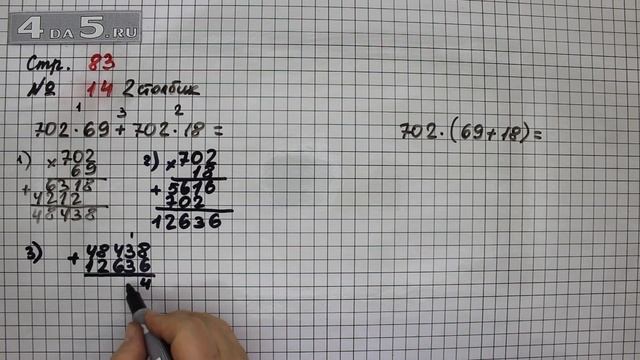 4 DA 5.RU
Стр. 83
№ 14 2 столбик
1 3 2
702·69+702·18=
702·(69+18)=
1) ×702
69
+6318
4212
48438
2) ×702
18
+5616
702
12636
3) 1
+48438
12636
4